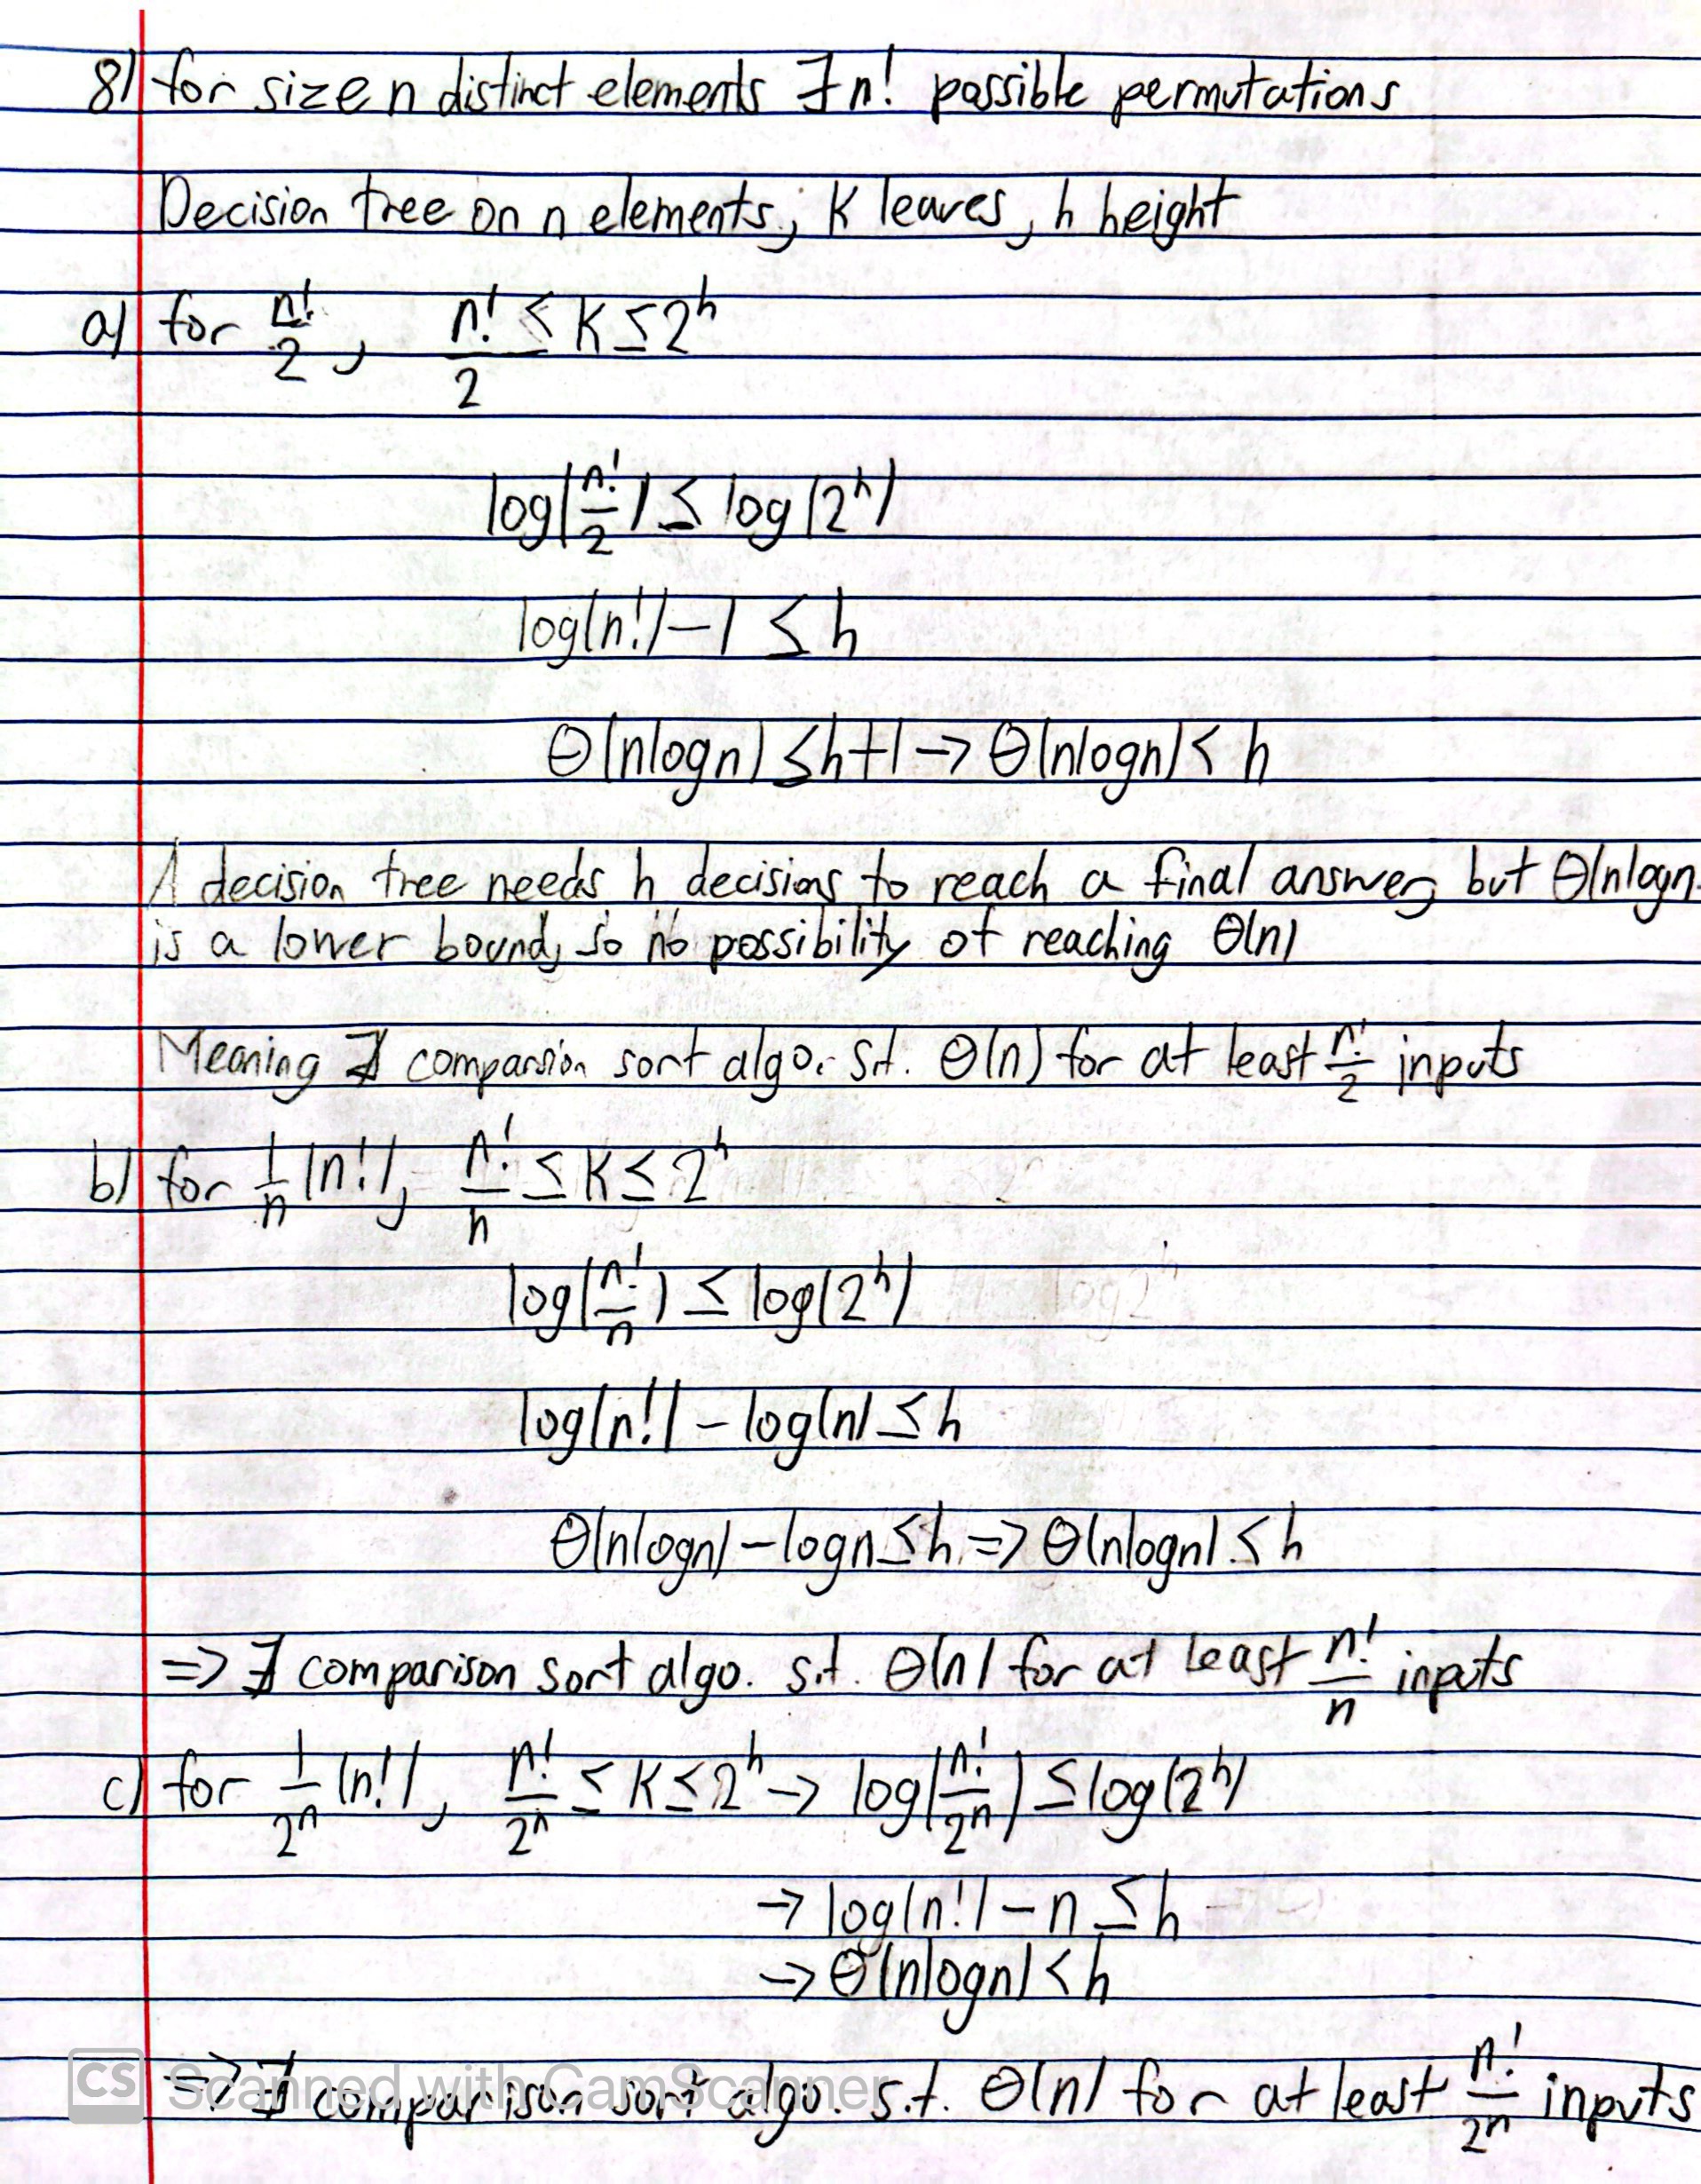 8) for size n distinct elements ∃ n! possible permutations
Decision tree on n elements, K leaves, h height
a) for n!/2, n!/2 ≤ K ≤ 2^h
log(n!/2) ≤ log(2^h)
log(n!) - 1 ≤ h
Θ(nlogn) ≤ h+1 → Θ(nlogn) ≤ h
A decision tree needs h decisions to reach a final answer, but Θ(nlogn
is a lower bound, so no possibility of reaching Θ(n)
Meaning ∄ comparsion sort algo. s.t. Θ(n) for at least n!/2 inputs
b) for 1/n (n!), n!/n ≤ K ≤ 2^h
log(n!/n) ≤ log(2^h)
log(n!) - log(n) ≤ h
Θ(nlogn) - logn ≤ h => Θ(nlogn) ≤ h
=> ∄ comparison sort algo. s.t. Θ(n) for at least n!/n inputs
c) for 1/2^n (n!), n!/2^n ≤ K ≤ 2^h → log(n!/2^n) ≤ log(2^h)
→ log(n!) - n ≤ h
→ Θ(nlogn) < h
=> ∄ comparison sort algo. s.t. Θ(n) for at least n!/2^n inputs
CS Scanned with CamScanner